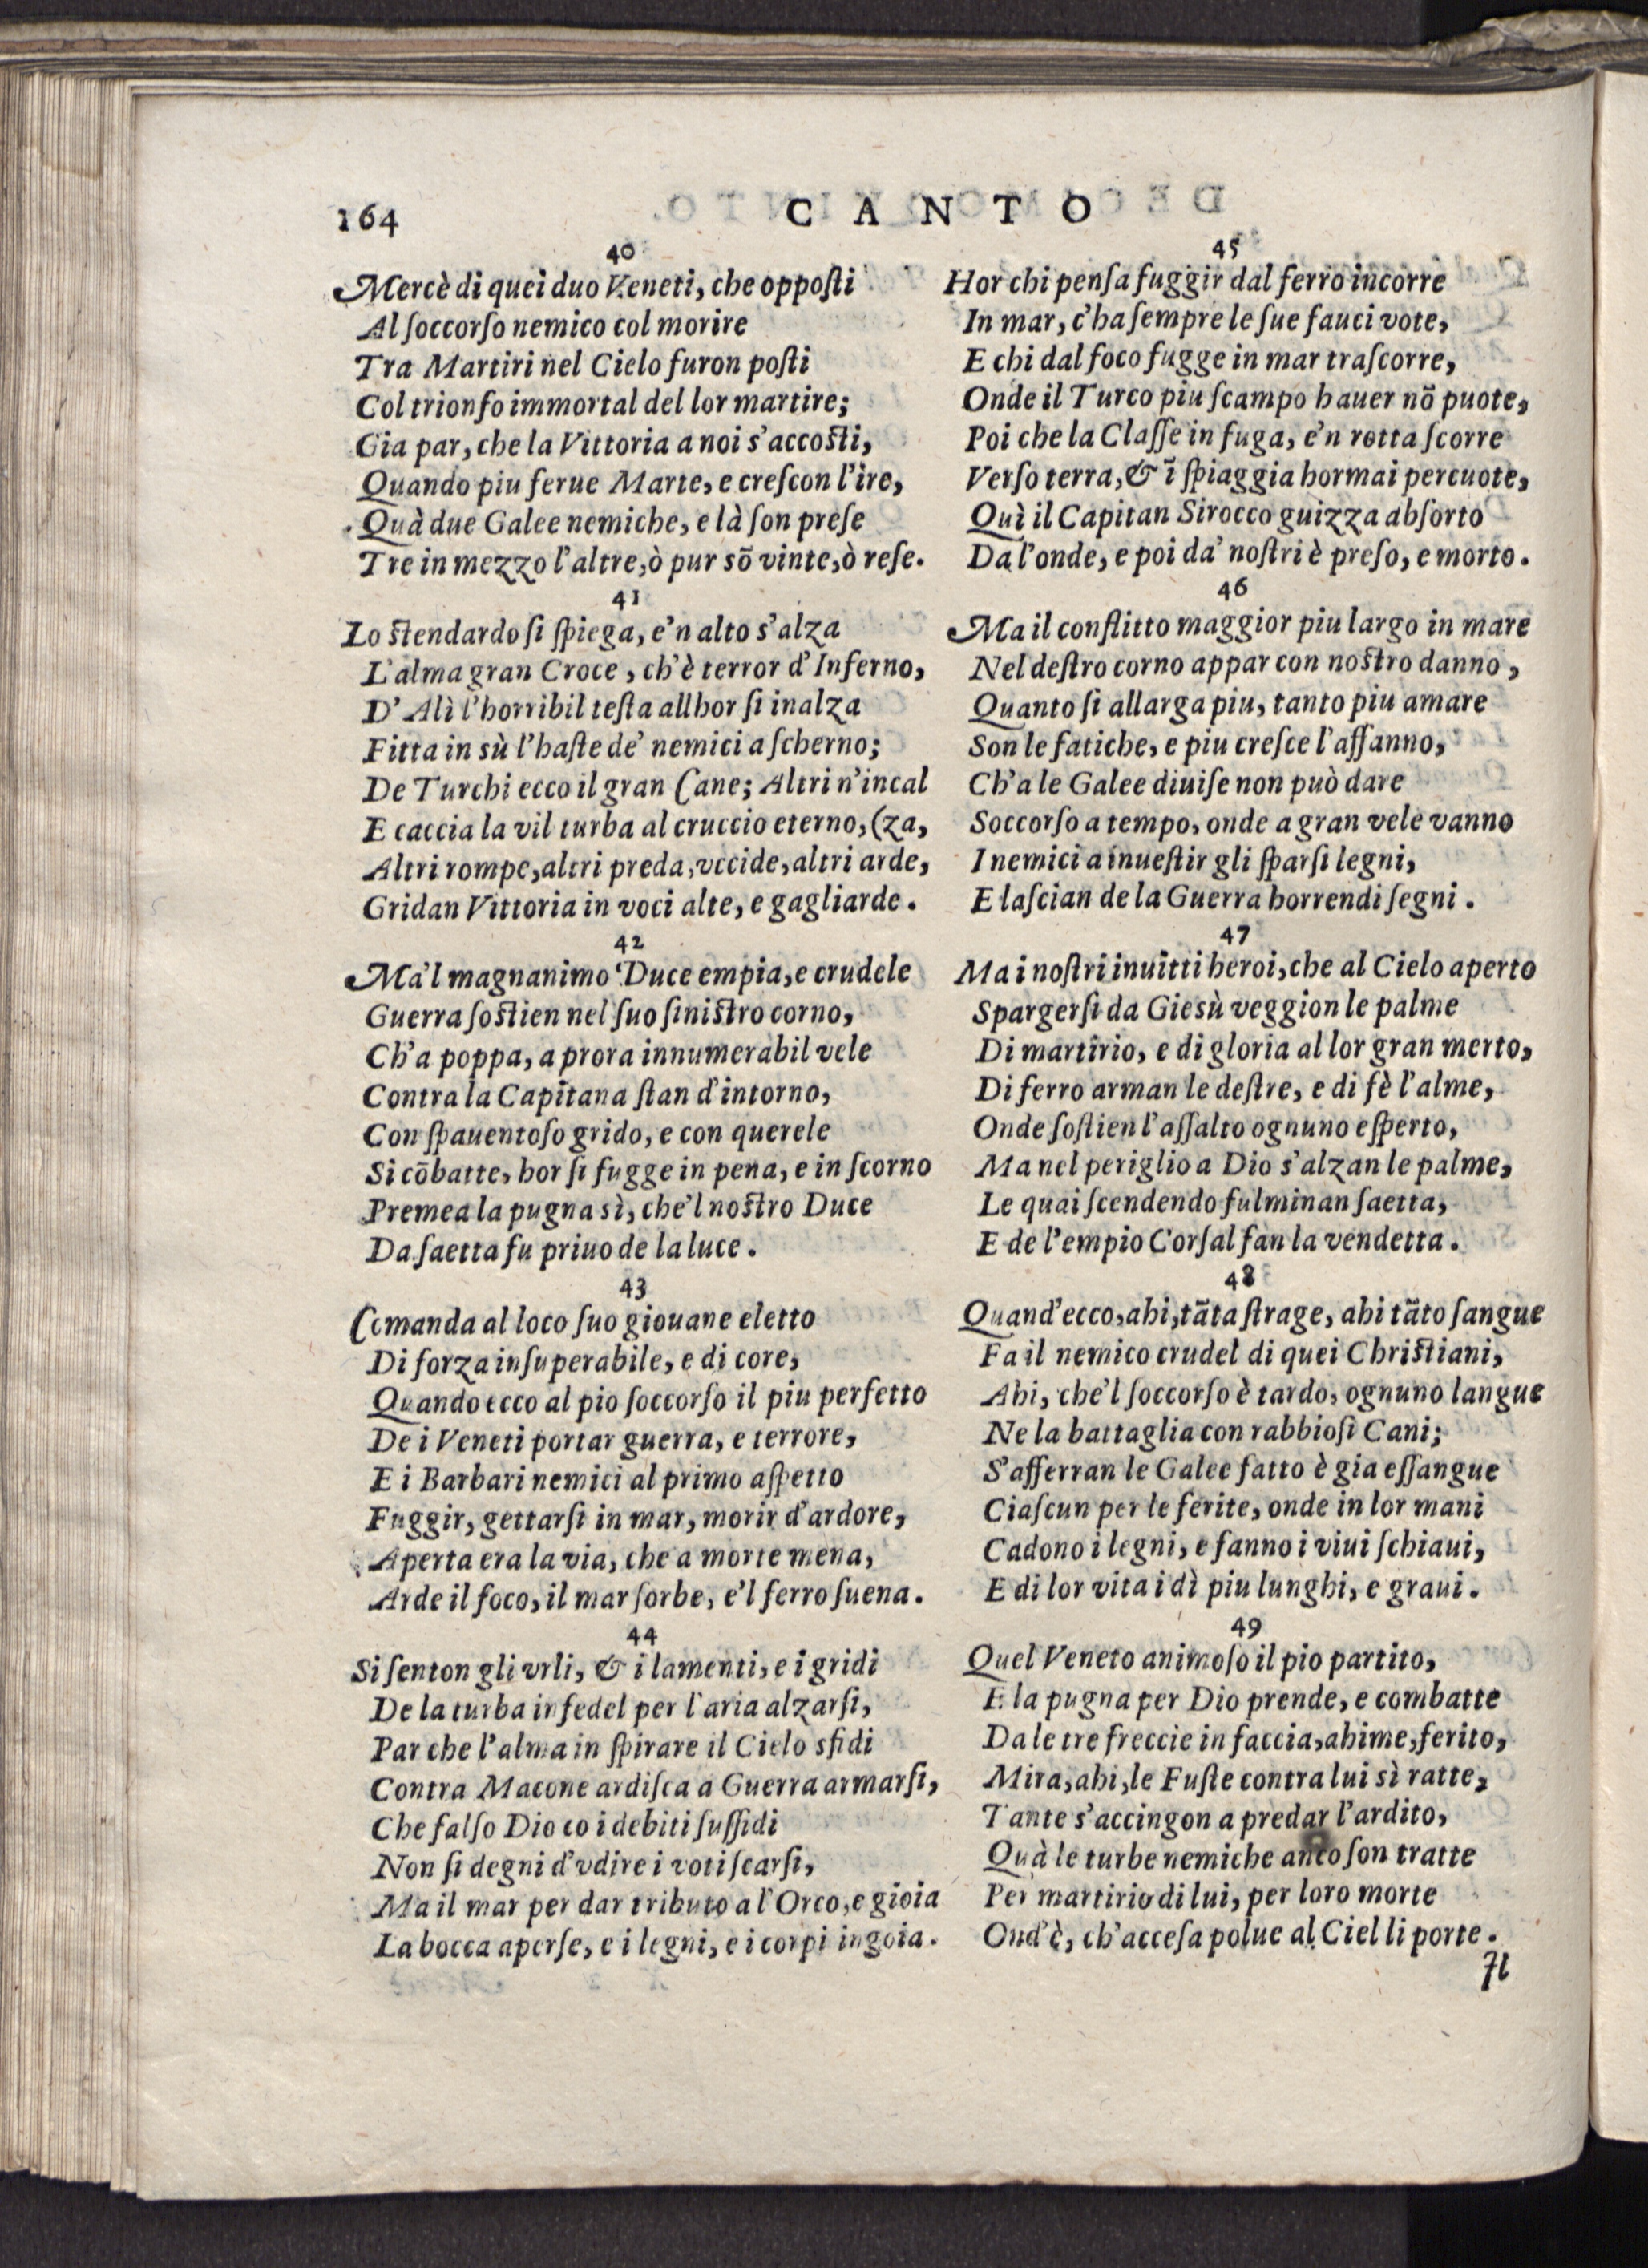 164
CANTO
40
Mercè di quei duo Veneti, che oppoſti
Al ſoccorſo nemico col morire
Tra Martiri nel Cielo furon poſti
Col trionfo immortal del lor martire;
Gia par, che la Vittoria a noi s'accoſti,
Quando piu ferue Marte, e creſcon l'ire,
Quà due Galee nemiche, e là ſon preſe
Tre in mezzo l'altre, ò pur sõ vinte, ò reſe.
41
Lo ſtendardo ſi ſpiega, e'n alto s'alza
L'alma gran Croce, ch'è terror d'Inferno,
D'Alì l'horribil teſta allhor ſi inalza
Fitta in sù l'haſte de' nemici a ſcherno;
De Turchi ecco il gran Cane; Altri n'incal
E caccia la vil turba al cruccio eterno, (za,
Altri rompe, altri preda, vccide, altri arde,
Gridan Vittoria in voci alte, e gagliarde.
42
Ma'l magnanimo Duce empia, e crudele
Guerra ſoſtien nel ſuo ſiniſtro corno,
Ch'a poppa, a prora innumerabil vele
Contra la Capitana ſtan d'intorno,
Con ſpauentoſo grido, e con querele
Si cõbatte, hor ſi fugge in pena, e in ſcorno
Premea la pugna sì, che'l noſtro Duce
Da ſaetta fu priuo de la luce.
43
Comanda al loco ſuo giouane eletto
Di forza inſuperabile, e di core,
Quando ecco al pio ſoccorſo il piu perfetto
De i Veneti portar guerra, e terrore,
E i Barbari nemici al primo aſpetto
Fuggir, gettarſi in mar, morir d'ardore,
Aperta era la via, che a morte mena,
Arde il foco, il mar ſorbe, e'l ferro ſuena.
44
Si ſenton gli vrli, & i lamenti, e i gridi
De la turba infedel per l'aria alzarſi,
Par che l'alma in ſpirare il Cielo sfidi
Contra Macone ardiſca a Guerra armarſi,
Che falſo Dio co i debiti ſuſſidi
Non ſi degni d'vdire i voti ſcarſi,
Ma il mar per dar tributo a l'Orco, e gioia
La bocca aperſe, e i legni, e i corpi ingoia.
45
Hor chi penſa fuggir dal ferro incorre
In mar, c'ha ſempre le ſue fauci vote,
E chi dal foco fugge in mar traſcorre,
Onde il Turco piu ſcampo hauer nõ puote,
Poi che la Claſſe in fuga, e'n rotta ſcorre
Verſo terra, & ĩ ſpiaggia hormai percuote,
Quì il Capitan Sirocco guizza abſorto
Da l'onde, e poi da' noſtri è preſo, e morto.
46
Ma il conflitto maggior piu largo in mare
Nel deſtro corno appar con noſtro danno,
Quanto ſi allarga piu, tanto piu amare
Son le fatiche, e piu creſce l'affanno,
Ch'a le Galee diuiſe non può dare
Soccorſo a tempo, onde a gran vele vanno
I nemici a inueſtir gli ſparſi legni,
E laſcian de la Guerra horrendi ſegni.
47
Ma i noſtri inuitti heroi, che al Cielo aperto
Spargerſi da Giesù veggion le palme
Di martirio, e di gloria al lor gran merto,
Di ferro arman le deſtre, e di fè l'alme,
Onde ſoſtien l'aſſalto ognuno eſperto,
Ma nel periglio a Dio s'alzan le palme,
Le quai ſcendendo fulminan ſaetta,
E de l'empio Corſal fan la vendetta.
48
Quand'ecco, ahi, tãta ſtrage, ahi tãto ſangue
Fa il nemico crudel di quei Chriſtiani,
Ahi, che'l ſoccorſo è tardo, ognuno langue
Ne la battaglia con rabbioſi Cani;
S'afferran le Galee fatto è gia eſſangue
Ciaſcun per le ferite, onde in lor mani
Cadono i legni, e fanno i viui ſchiaui,
E di lor vita i dì piu lunghi, e graui.
49
Quel Veneto animoſo il pio partito,
E la pugna per Dio prende, e combatte
Da le tre freccie in faccia, ahime, ferito,
Mira, ahi, le Fuſte contra lui sì ratte,
Tante s'accingon a predar l'ardito,
Quà le turbe nemiche anco ſon tratte
Per martirio di lui, per loro morte
Ond'è, ch'acceſa polue al Ciel li porte.
Il